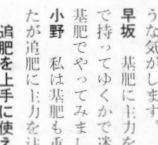 うな気がします。
早坂　基肥に主力を
で持ってゆくかで迷
基肥でやってみまし
小野　私は基肥も重
たが追肥に主力を注
追肥を上手に使え